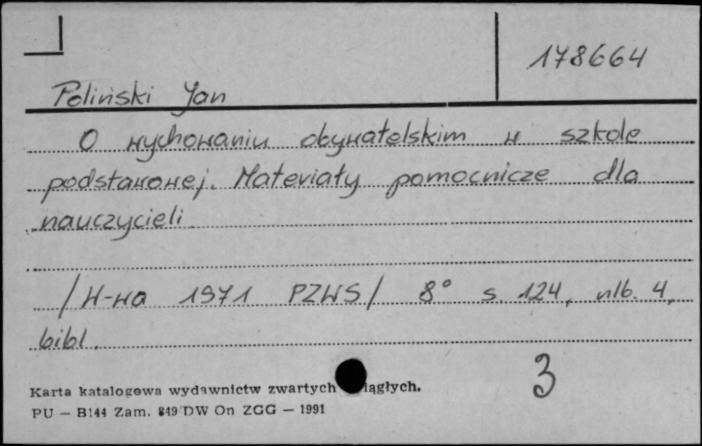 178664
Poliński Jan
O wychowaniu obywatelskim w szkole
podstawowej. Materiały pomocnicze dla
nauczycieli
/W-wa 1971 PZWS/ 8° s. 124, nlb. 4,
bibl.
3
Karta katalogowa wydawnictw zwartych iągłych.
PU — B144 Zam. 849 DW On ZGG — 1991